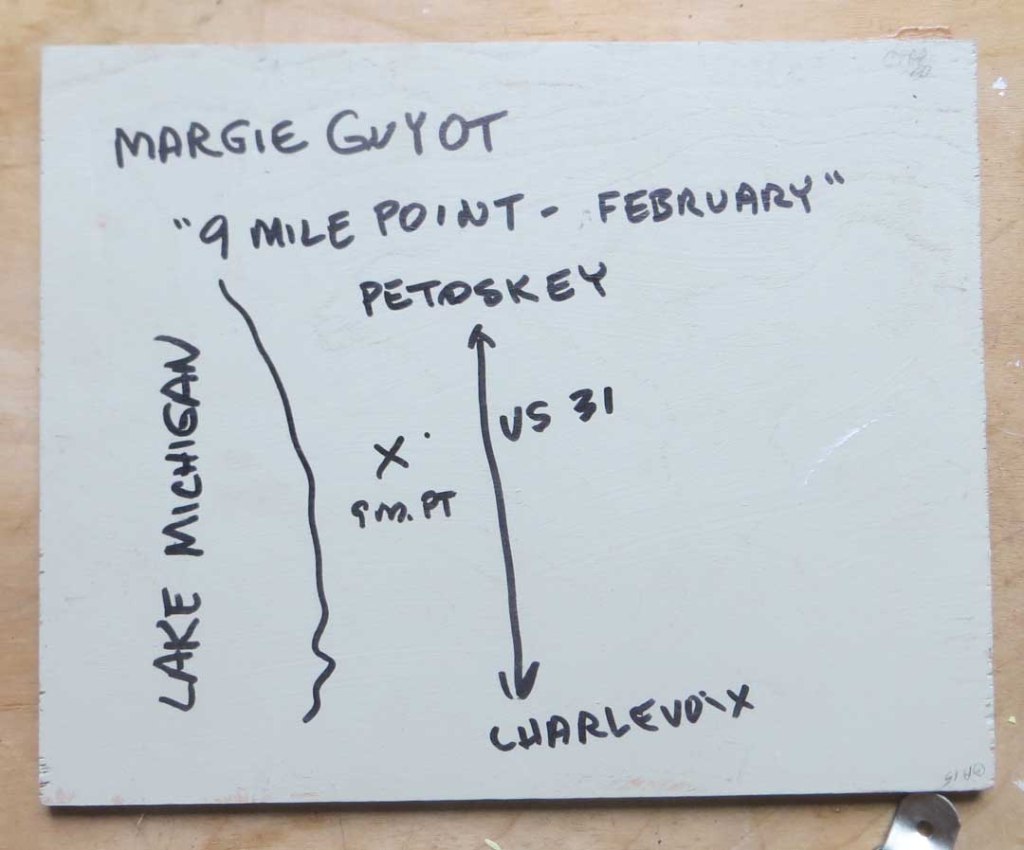 MARGIE GUYOT
"9 MILE POINT - FEBRUARY"
PETOSKEY
LAKE MICHIGAN
US 31
X
9 M. PT
CHARLEVOIX